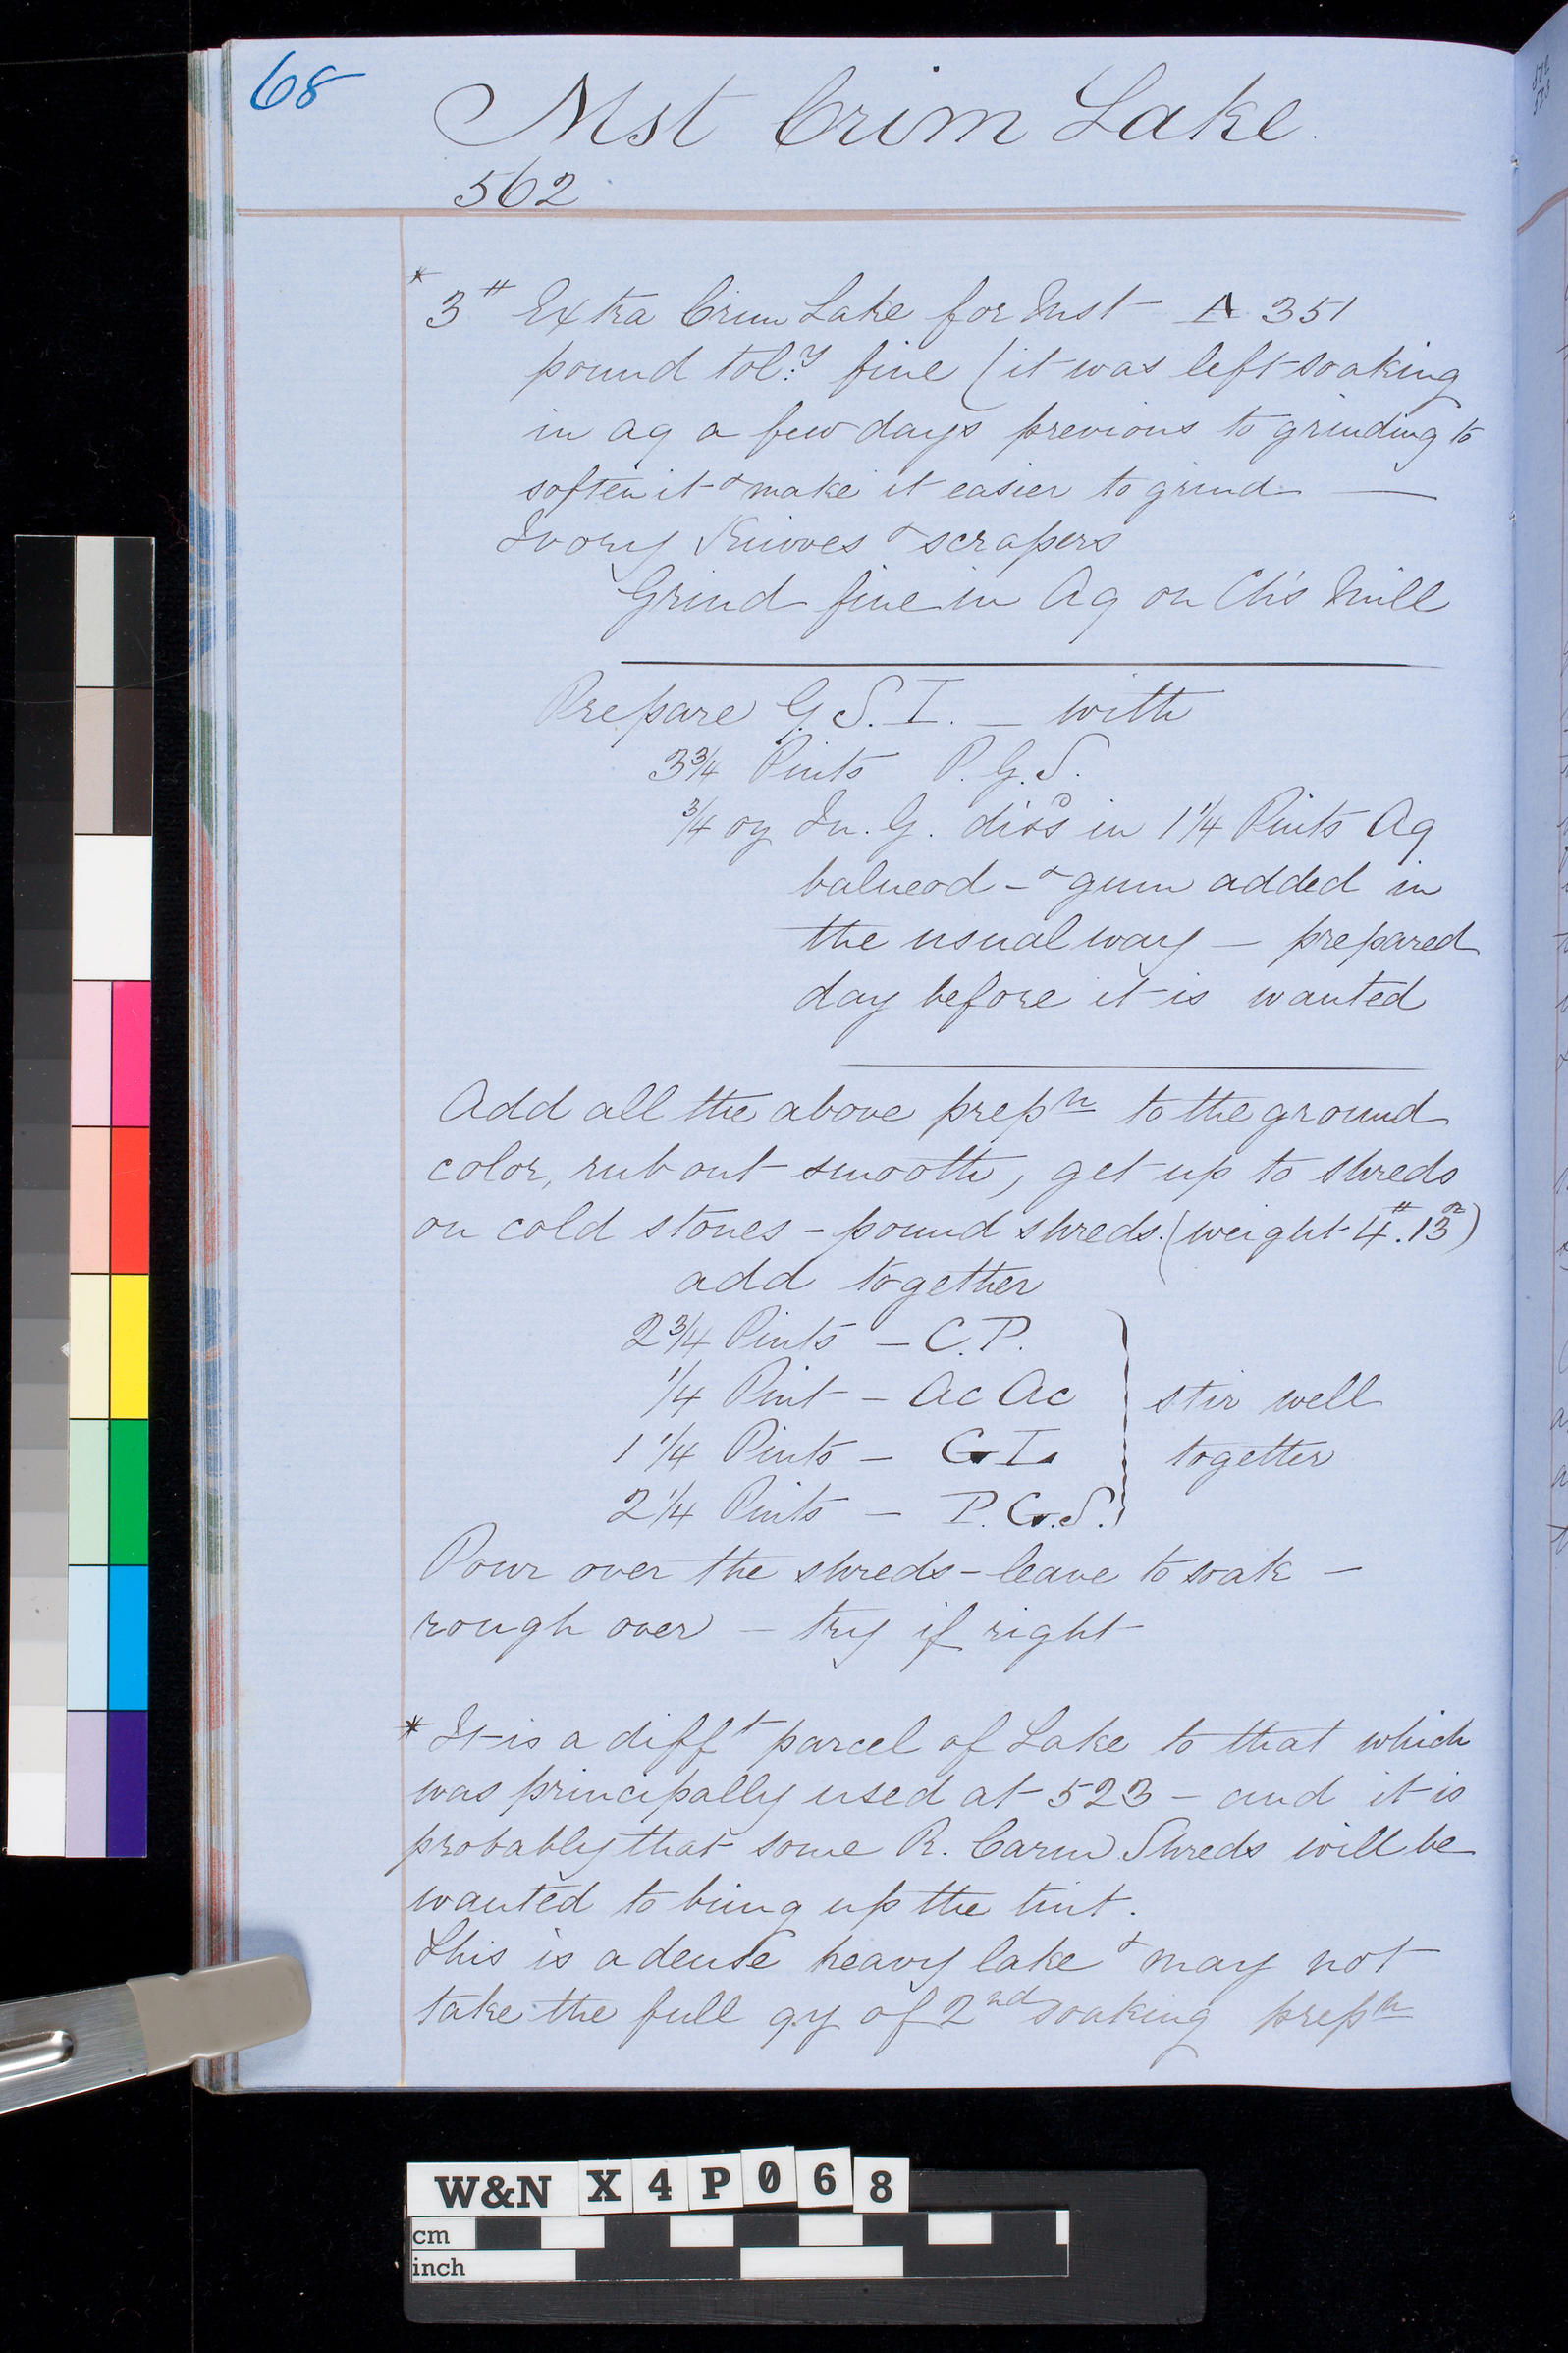 68
Mst Crim Lake.
562
* 3# Extra Crim Lake for Mst A 351
pound tol:y fine (it was left soaking
in aq a few days previous to grinding to
soften it & make it easier to grind —
Ivory Knives & scrapers
Grind fine in Aq on Ch's Mill
Prepare G.S.I. — with
3¾ Pints P.G.S.
¾ oz In. G. dissd in 1¼ Pints Aq
balneod - & gum added in
the usual way — prepared
day before it is wanted
Add all the above prepn to the ground
color, rub out smooth, get up to shreds
on cold stones - pound shreds. (weight 4#.13oz)
add together
2¾ Pints — C.P.
¼ Pint — Ac Ac
1¼ Pints — G I.
2¼ Pints — P.G.S.
stir well
together
Pour over the shreds - leave to soak —
rough over — try if right
* It is a difft parcel of Lake to that which
was principally used at 523 - and it is
probably that some R. Carm Shreds will be
wanted to bring up the tint.
This is a dense heavy lake & may not
take the full qy of 2nd soaking prepn
W&N X4P068
cm
inch